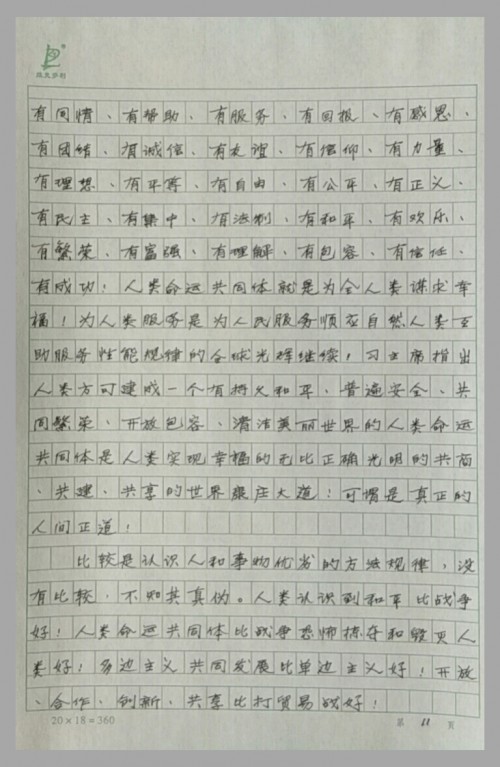 有同情、有帮助、有服务、有回报、有感恩、
有团结、有诚信、有友谊、有信仰、有力量、
有理想、有平等、有自由、有公平、有正义、
有民主、有集中、有法制、有和平、有欢乐、
有繁荣、有富强、有理解、有包容、有信任、
有成功！人类命运共同体就是为全人类谋求幸
福！为人类服务是为人民服务顺应自然人类互
助服务性能规律的全球光辉继续！习主席指出
人类方可建成一个有持久和平、普遍安全、共
同繁荣、开放包容、清洁美丽世界的人类命运
共同体是人类实现幸福的无比正确光明的共商
、共建、共享的世界康庄大道！可谓是真正的
人间正道！
比较是认识人和事物优劣的方法规律，没
有比较、不知其真伪。人类认识到和平比战争
好！人类命运共同体比战争恐怖掠夺和毁灭人
类好！多边主义共同发展比单边主义好！开放
、合作、创新、共享比打贸易战好！
20×18=360 第 11 页